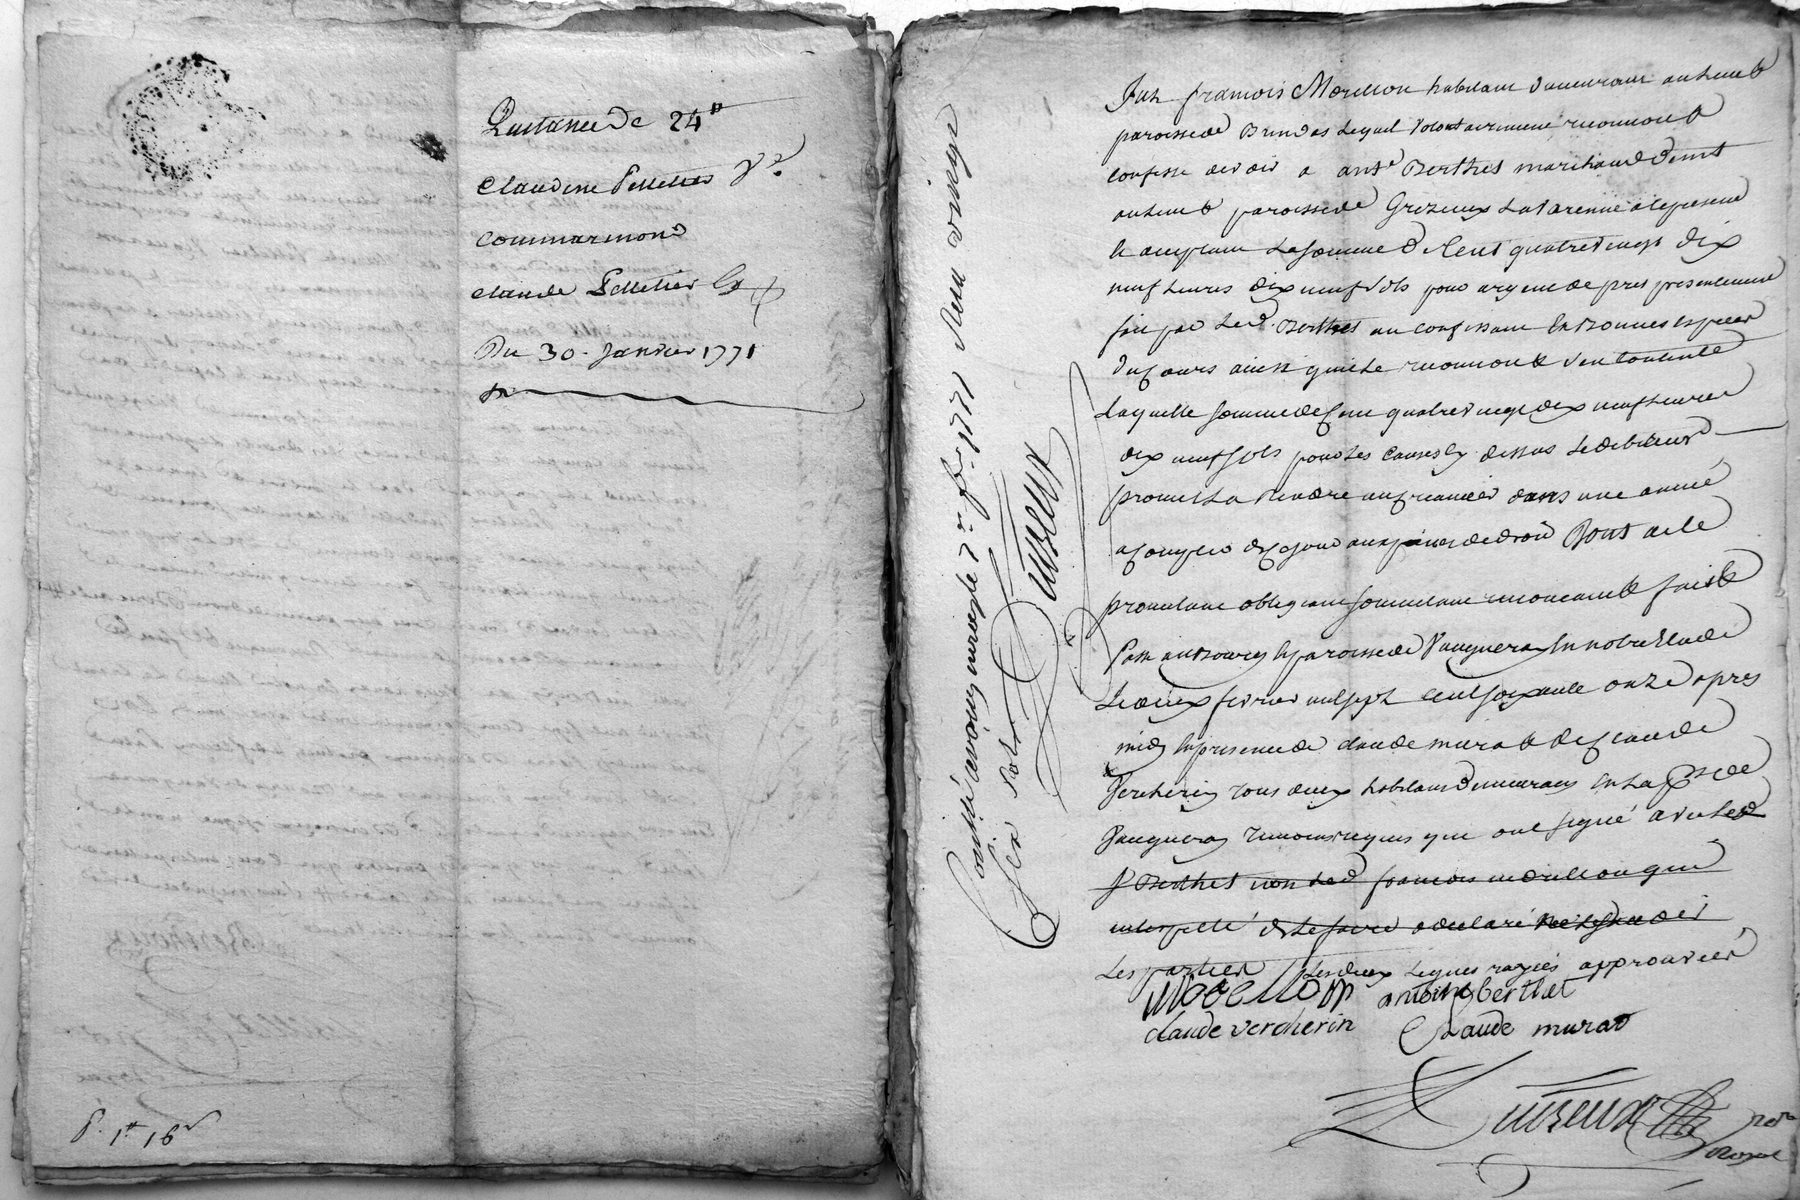 Quittance de 24#
Claudine Pelletier Ve
Commarmond
Claude Pelletier
Du 30. Janvier 1771
P. 1# 16s
Controllé à vaugneray le 7e fe. 1771 Reçu vingt
six sols
Duvieux
Fut françois Morillion habitant demeurant au lieu &
paroisse de Brindas lequel volontairement reconnoit &
confesse devoir a antoe Berthet marchand demt
au lieu & paroisse de Grezieux La Varenne a ce present
& acceptant La somme de Cent quatre vingt dix
neuf Livres dix neuf sols pour argent de pret presentement
fait par led. Berthet au confessant En Bonnes especes
du cours ainsi qu'il Le reconnoit & s'en Contente
Laquelle somme de Cent quatre vingt dix neuf Livres
dix neuf sols pour Les Causes Cy dessus Le debiteur
promet La rendre au Creancier dans une année
a Compter de Ce jour aux peines de droit Dont acte
promettant obligeant soumettant renonceant & fait &
Passé au Bourg & paroisse de Vaugneray En notre Etude
Le deux fevrier mil sept Cent soixante onze apres
midy En presence de claude murat & de Claude
Vercherin tous deux habitans Demeurans En La psse de
Vaugneray temoins requis qui ont signé avec Led
Sr Berthet non Led françois morillion qui
interpellé de Le faire a declaré
Les parties Les deux Lignes rayées approuvées
morellion antoine berthet
claude vercherin Claude murat
Duvieux Notre
Royal